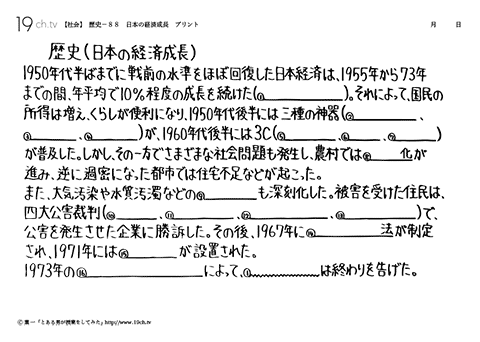 19ch.tv 【社会】 歴史-88 日本の経済成長 プリント 月 日
歴史(日本の経済成長)
1950年代半ばまでに戦前の水準をほぼ回復した日本経済は、1955年から73年
までの間、年平均で10%程度の成長を続けた( )。それによって、国民の
所得は増え、くらしが便利になり、1950年代後半には三種の神器( 、
、 )が、1960年代後半には3C( 、 、 )
が普及した。しかし、その一方でさまざまな社会問題も発生し、農村では 化が
進み、逆に過密になった都市では住宅不足などが起こった。
また、大気汚染や水質汚濁などの も深刻化した。被害を受けた住民は、
四大公害裁判( 、 、 、 )で、
公害を発生させた企業に勝訴した。その後、1967年に 法が制定
され、1971年には が設置された。
1973年の によって、 は終わりを告げた。
© 葉一「とある男が授業をしてみた」http://www.19ch.tv